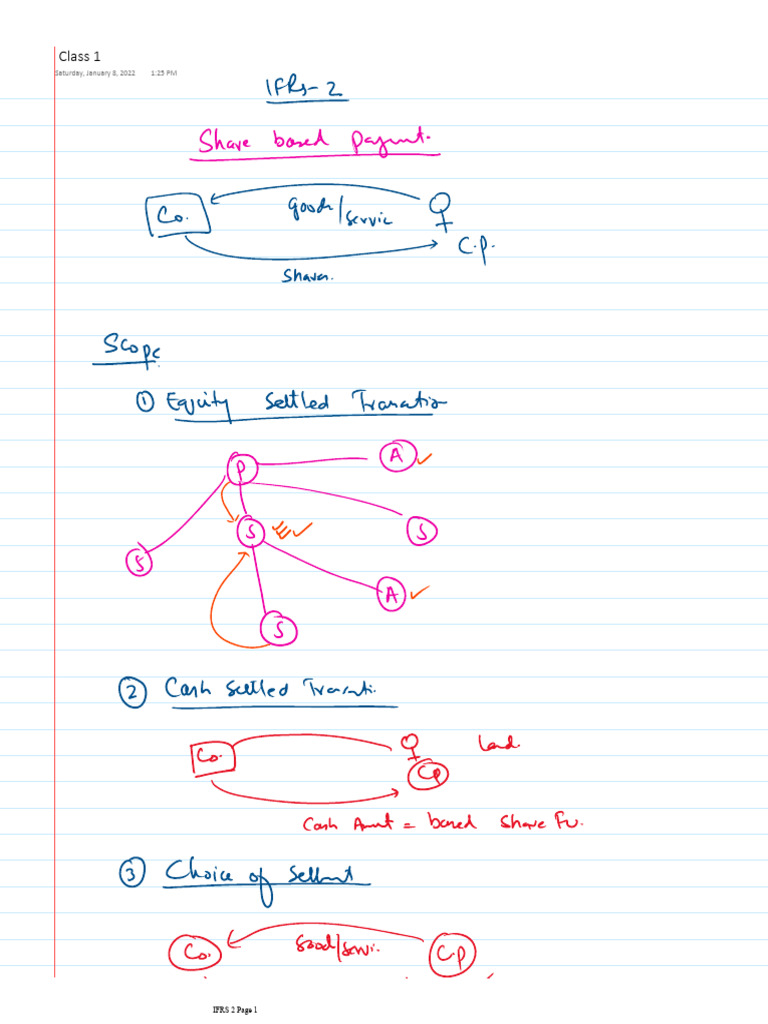 Class 1
Saturday, January 8, 2022 1:25 PM
IFRS-2
Share based Payment.
Co. Goods/Service C.P.
Shares.
Scope
① Equity Settled Transaction
P A
S S
S A
S
② Cash Settled Transacti.
Co. CP Land.
Cash Amt = based Share Fv.
③ Choice of Settlement
Co. Good/Servi. C.P
IFRS 2 Page 1